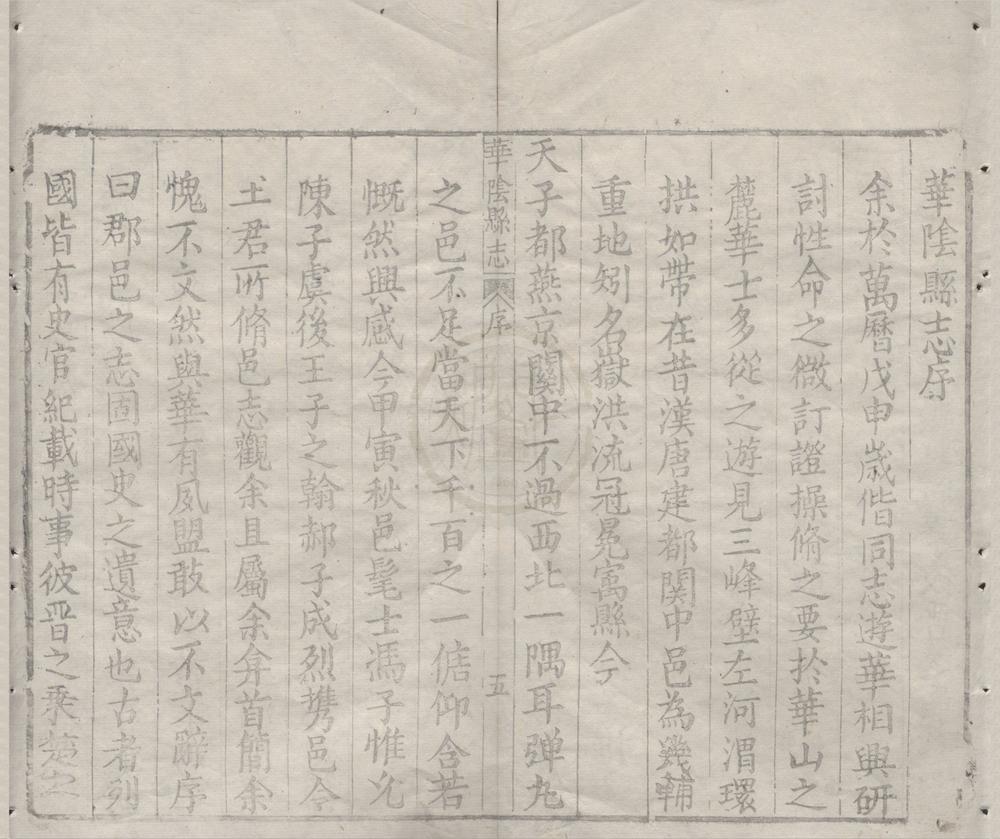 華陰縣志序
余於萬曆戊申歲偕同志遊華相興研
討性命之微訂證操脩之要扵華山之
麓華士多從之遊見三峰壁左河渭環
拱如帶在昔漢唐建都関中邑為畿輔
重地矧名嶽洪流冠冕寓縣今
天子都燕京関中不過西北一隅耳弹丸
華陰縣志 序 五
之邑不足當天下千百之一倍仰含若
慨然興感今甲寅秋邑髦士馮子惟允
陳子虞後王子之翰郝子成烈携邑令
王君所脩邑志觀余且屬余弁首簡余
愧不文然與華有夙盟敢以不文辭序
曰郡邑之志固國史之遺意也古者列
國皆有史官紀載時事彼晋之乘楚之